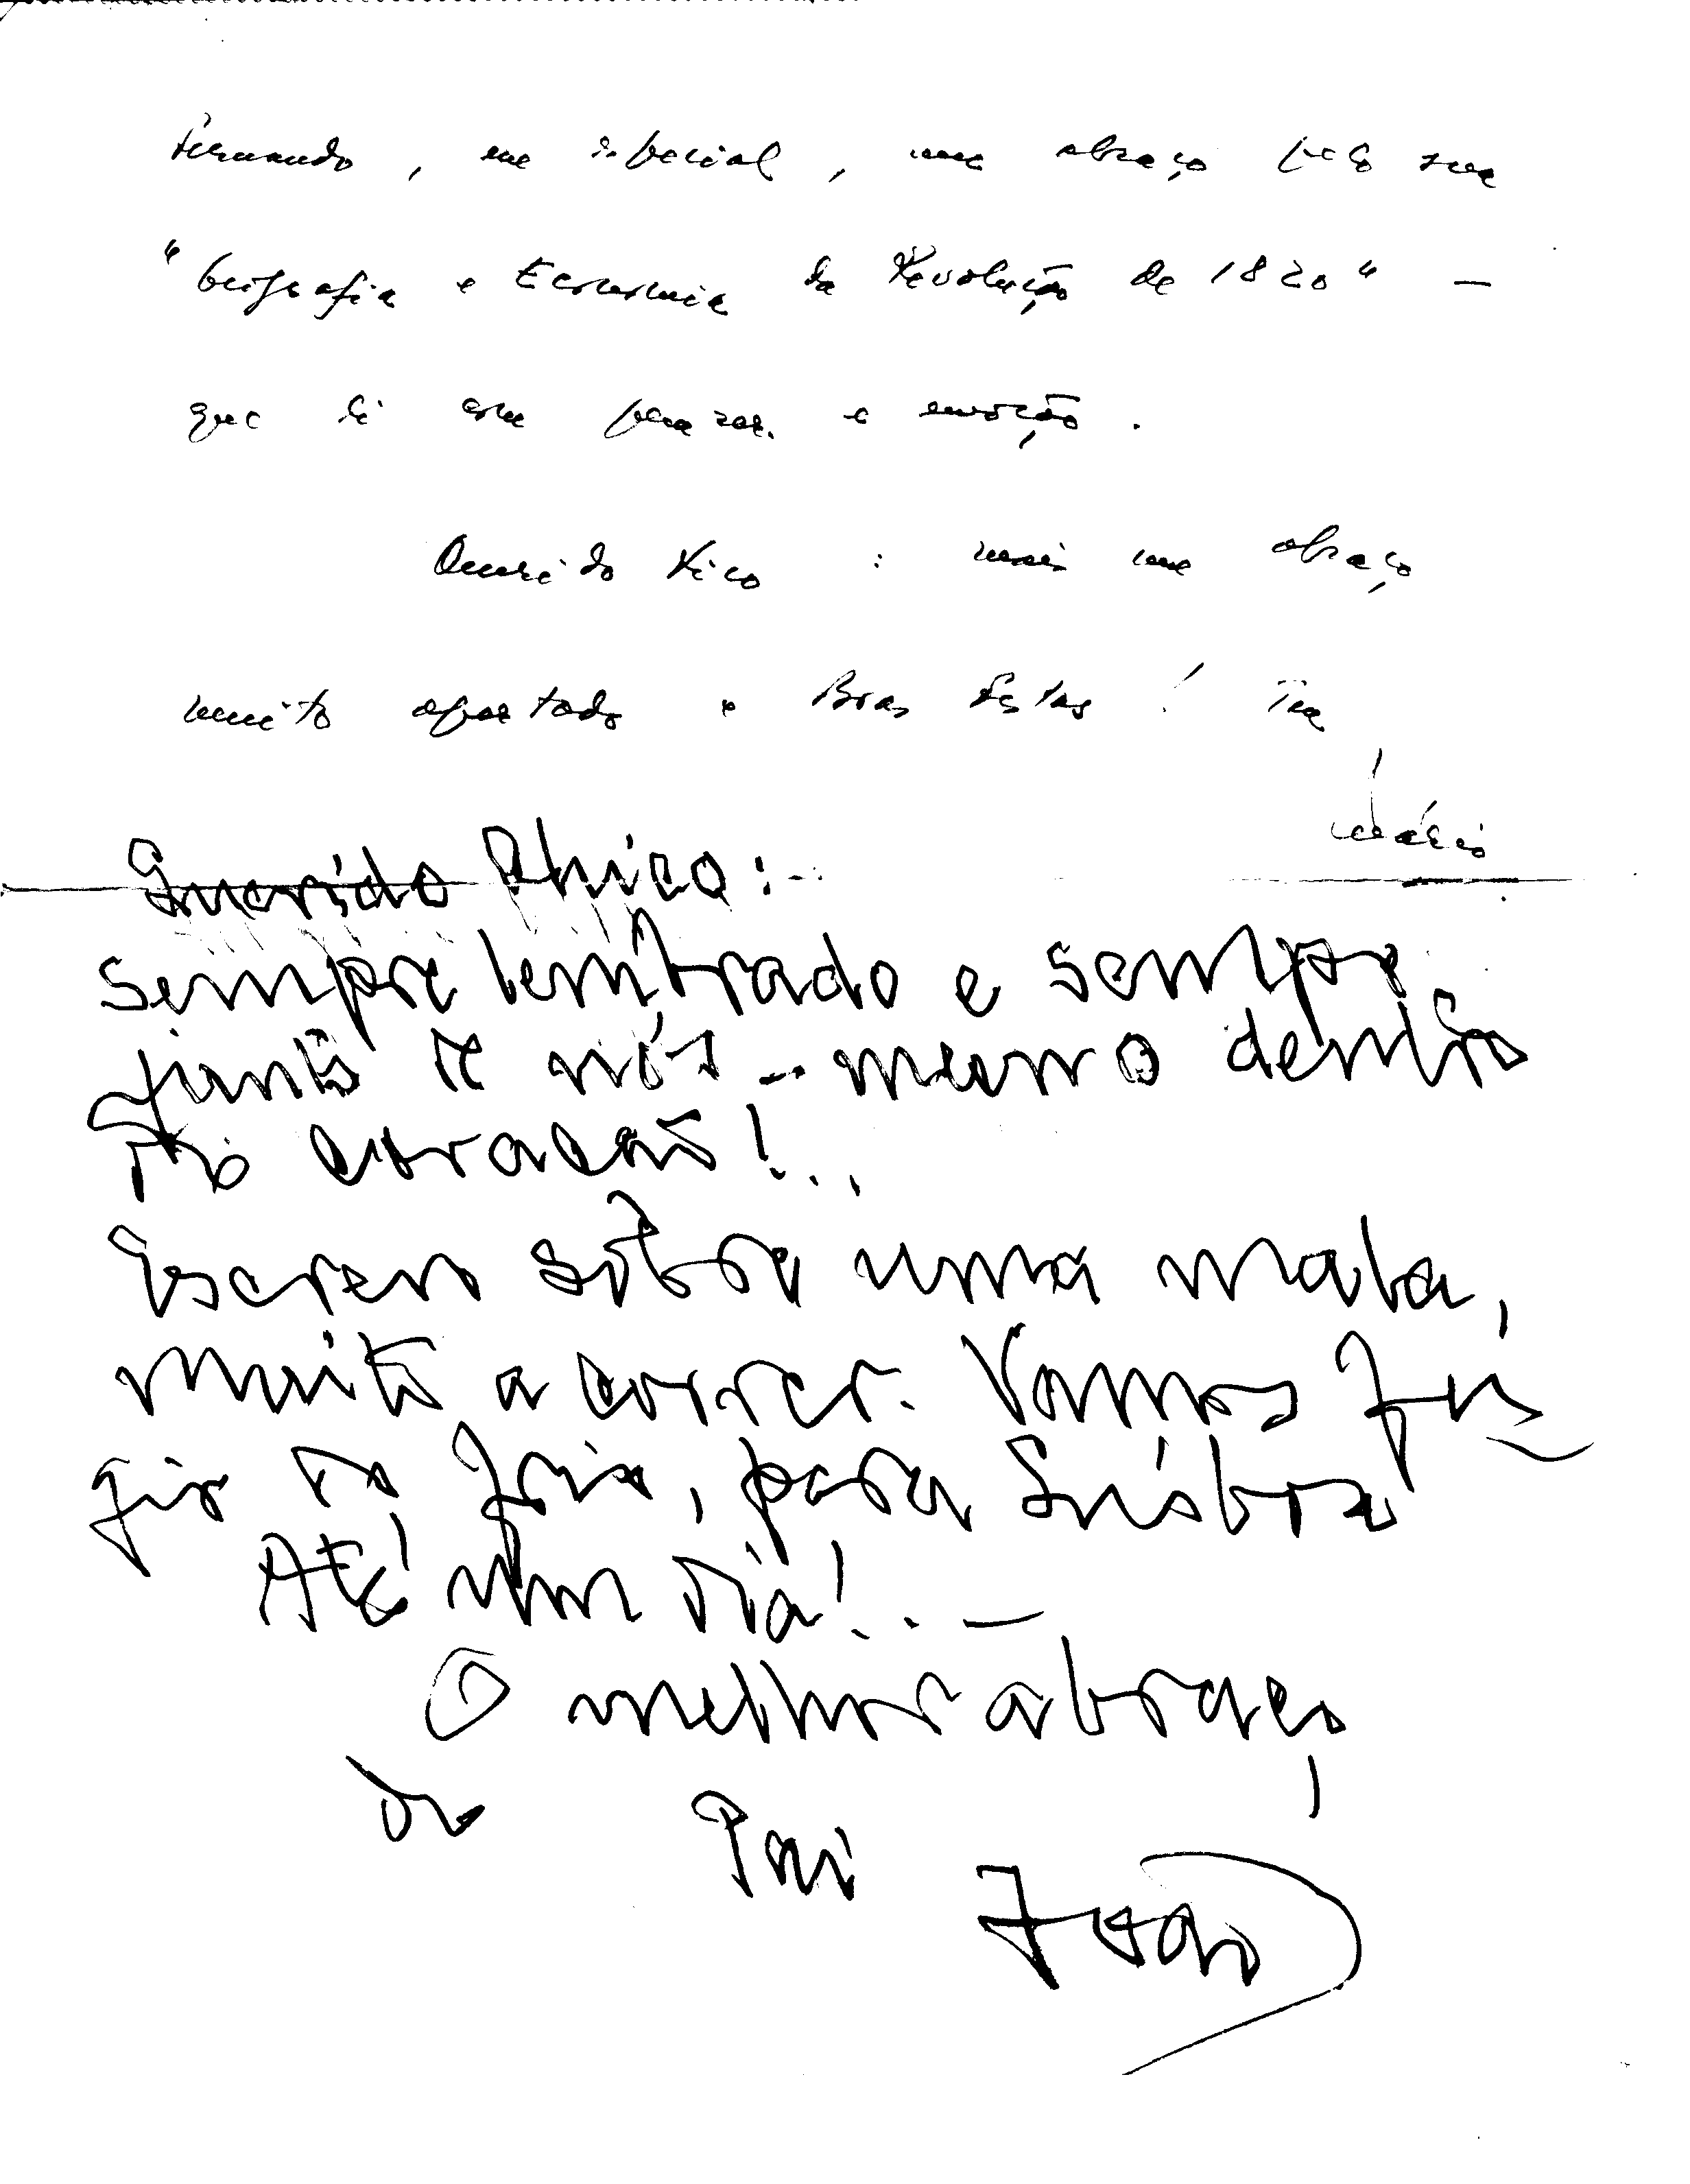 Fernando, em especial, um abraço pelo seu
"Geografia e Economia da Revolução de 1820" —
que li com prazer e emoção.
Querido Xico : mais um abraço
muito apertado e Boas Festas ! Tua
Querido Chico :-
sempre lembrado e sempre
junto de nós - mesmo dentro
do coração!..
Escrevo sôbre uma mala,
muito a correr. Vamos fu=
gir do frio, para Lisboa
Até um dia!.. —
O melhor abraço
do Pai
João